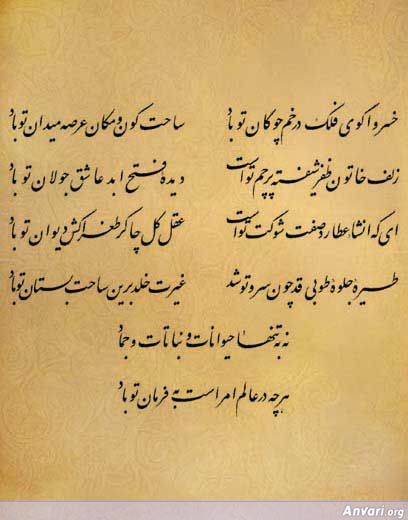 خسروا گوی فلک در خم چوگان تو باد ساحت کون و مکان عرصه میدان تو باد
زلف خاتون ظفر شیفته پرچم توست دیده فتح ابد عاشق جولان تو باد
ای که انشا عطارد صفت شوکت توست عقل کل چاکر طغراکش دیوان تو باد
طیره جلوه طوبی قد چون سرو تو شد غیرت خلد برین ساحت بستان تو باد
نه به تنها حیوانات و نباتات و جماد
هرچه در عالم امر است به فرمان تو باد
Anvari.org